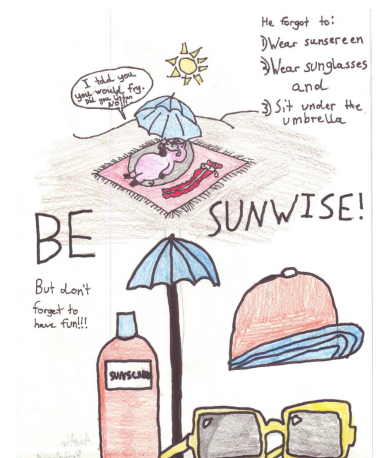 He forgot to:
1) Wear sunsereen
2) Wear sunglasses
and
3) Sit under the
umbrella
I told you
you would fry.
Did you listen
NO!!!
BE SUNWISE!
But don't
forget to
have fun!!!
SUNSCREEN
Austin